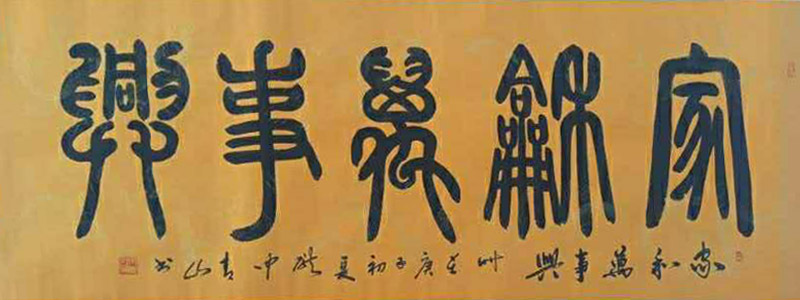 家龢萬事興
家和萬事興 庚子初夏 中青山书